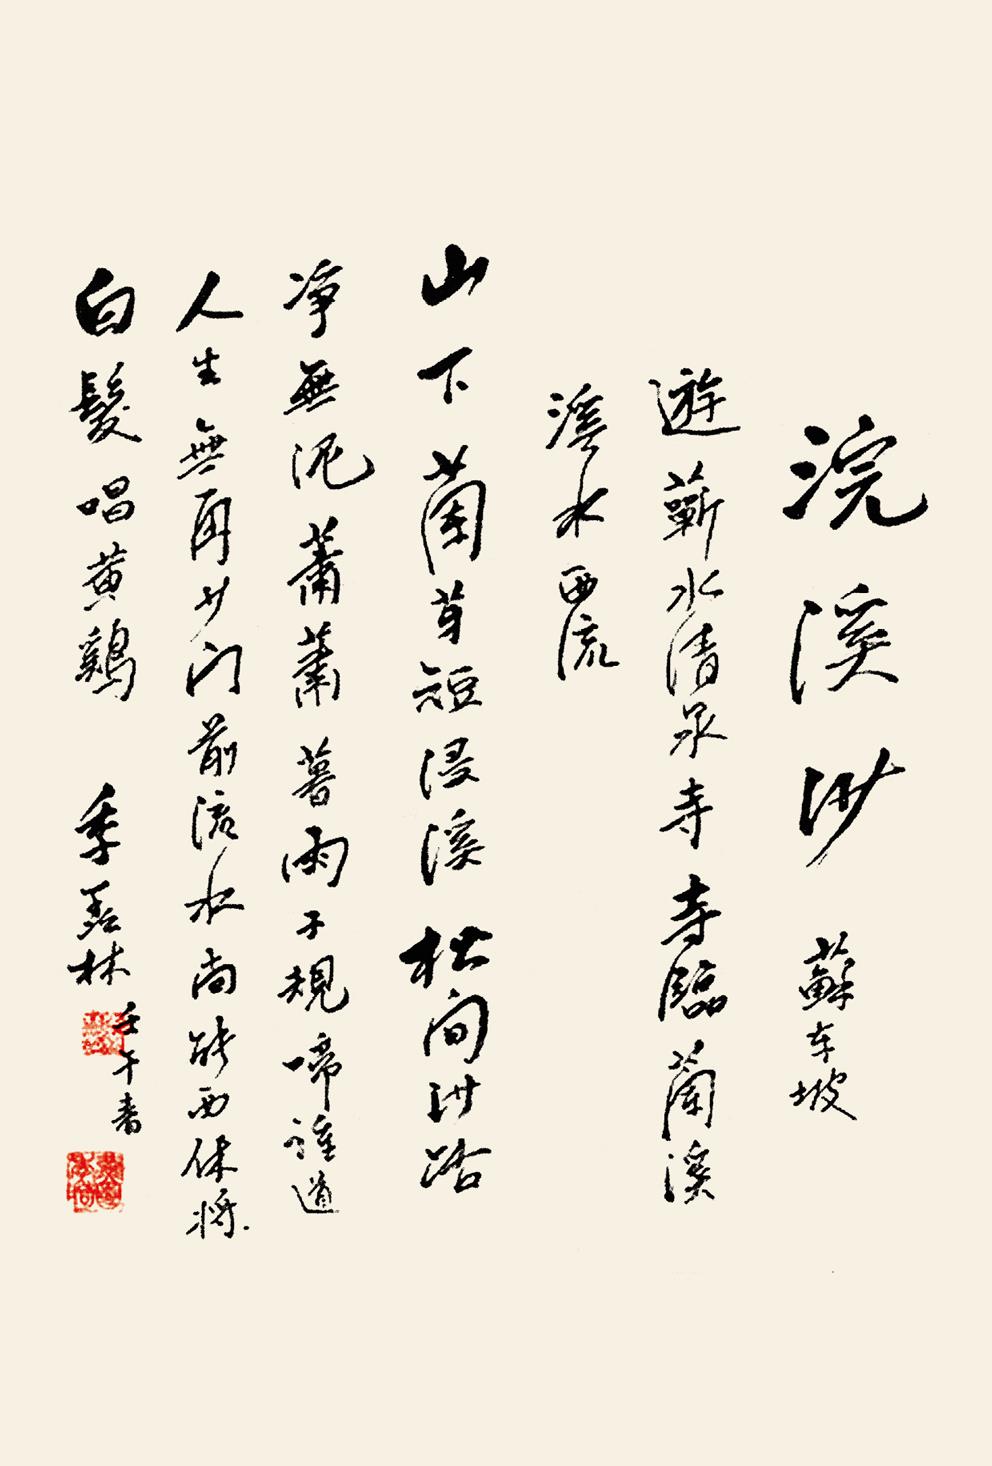 浣溪沙 蘇东坡
遊蘄水清泉寺寺臨蘭溪
溪水西流
山下蘭芽短浸溪松间沙路
淨無泥蕭蕭暮雨子規啼誰道
人生無再少门前流水尚能西休将
白髮唱黄鷄 季羡林
壬午書